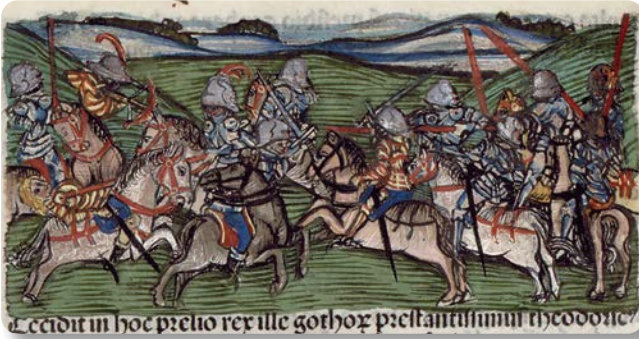 Cecidit in hoc prelio rex ille gothoꝝ preſtantiſſimus theodoricꝰ